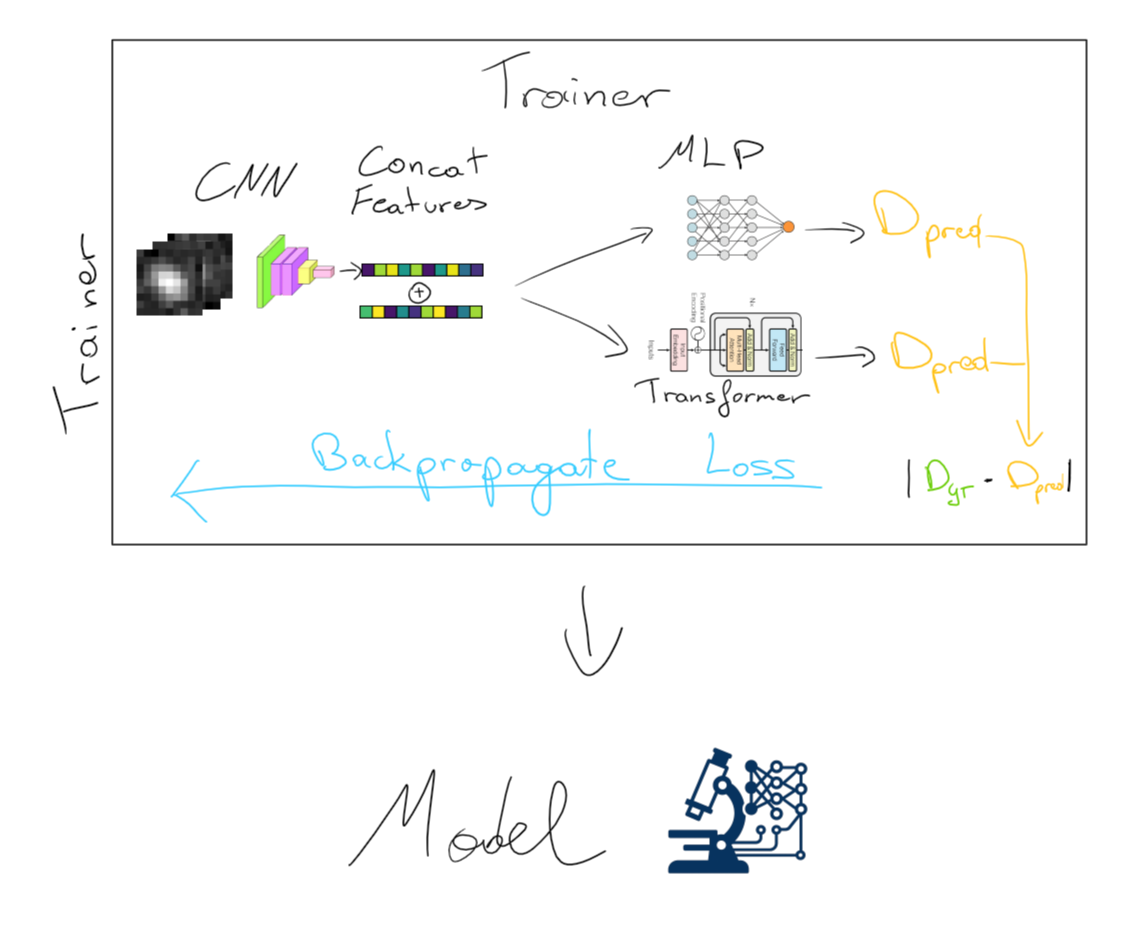 Trainer
Trainer
CNN
Concat
Features
+
MLP
D pred
Inputs
Input
Embedding
Positional
Encoding
N×
Multi-Head
Attention
Add & Norm
Feed
Forward
Add & Norm
Transformer
D pred
Backpropagate Loss
| D gt - D pred |
Model